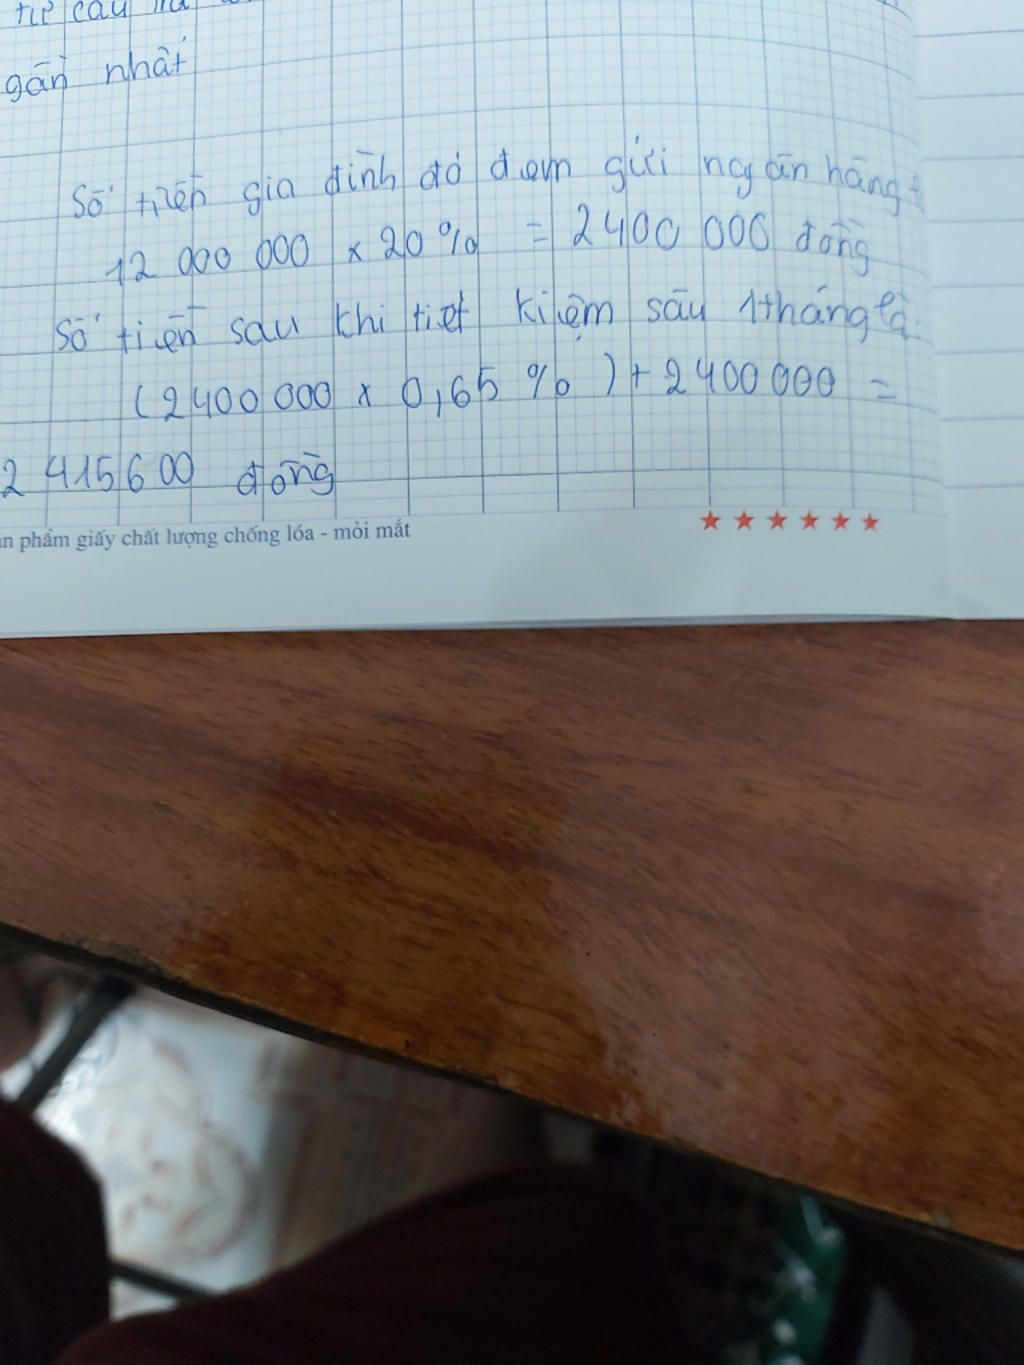 gần nhất
Số tiền gia đình đó đem gửi ngân hàng
12 000 000 x 20% = 2400 000 đồng
Số tiền sau khi tiết kiệm sau 1 tháng là
(2400 000 x 0,65 %) + 2 400 000 =
2 415600 đồng
phẩm giấy chất lượng chống lóa - mỏi mắt